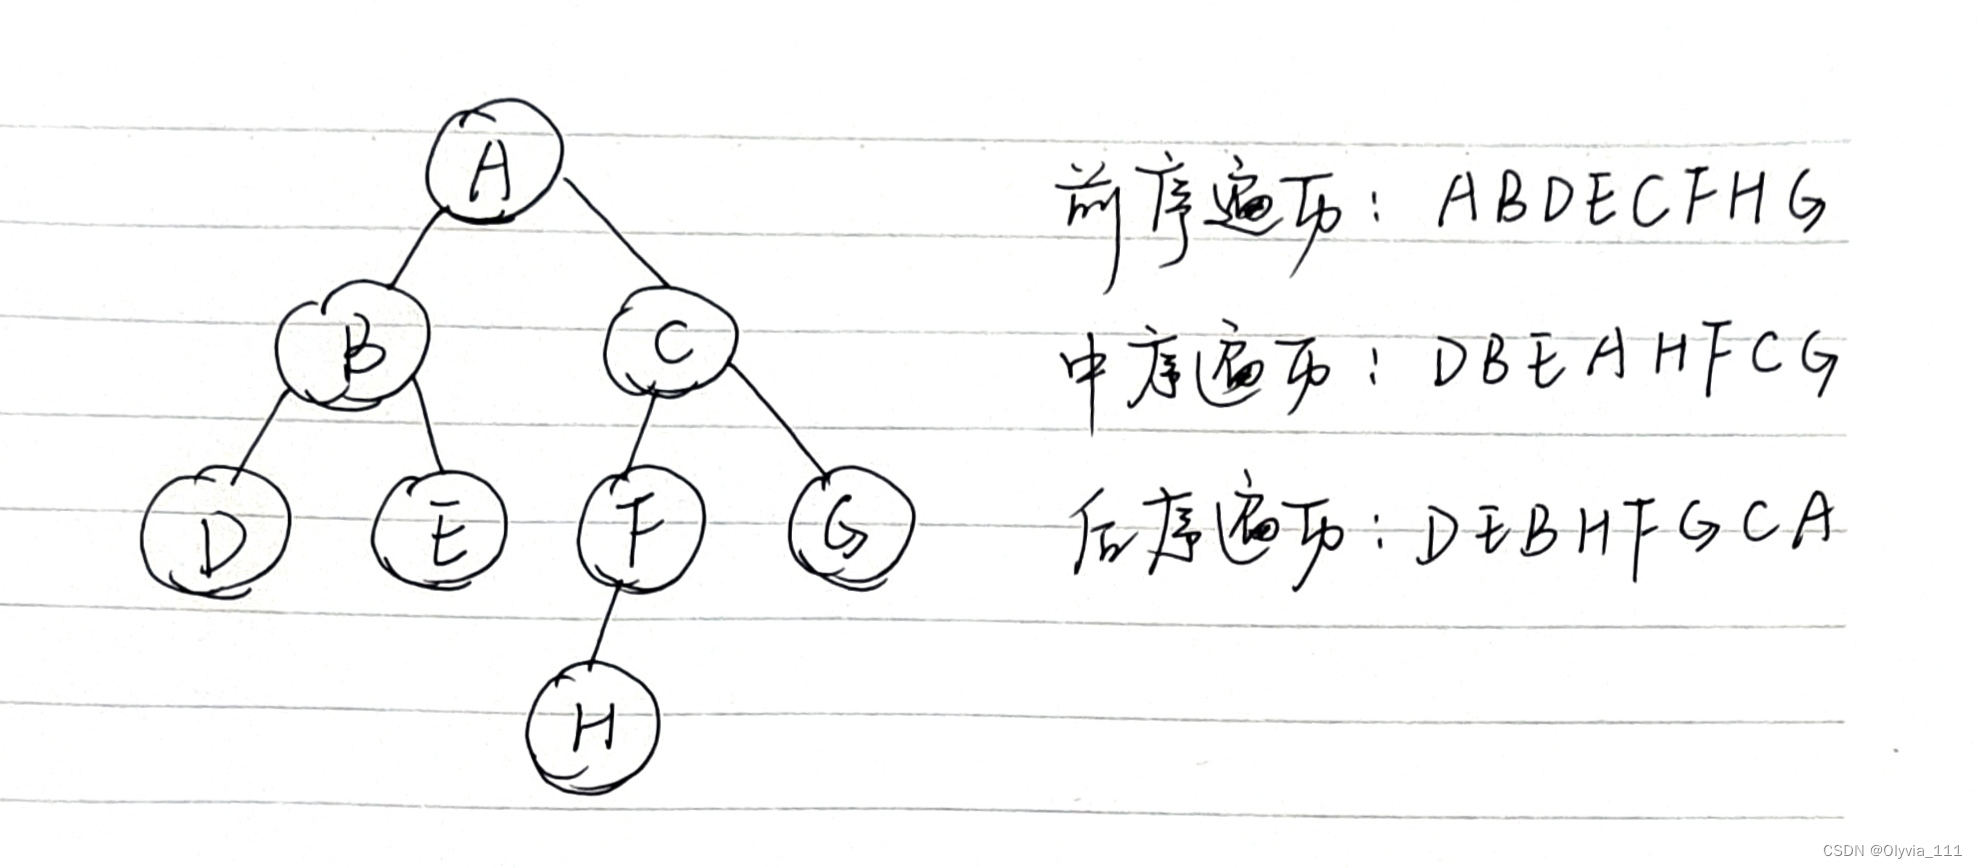 A
前序遍历: ABDECFHG
B
C
中序遍历: DBEAHFCG
D
E
F
G
后序遍历: DEBHFGCA
H
CSDN @Olyvia_111